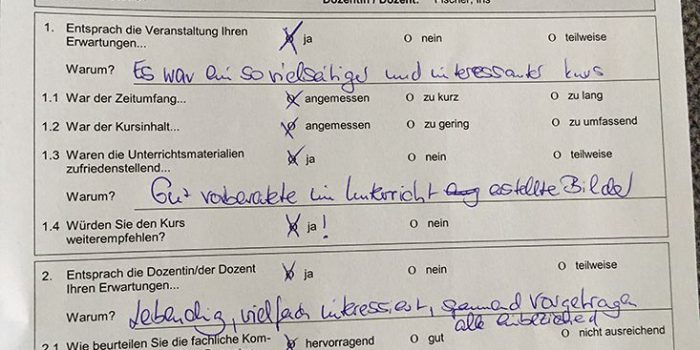 Dozentin / Dozent: Fischer, Iris
1. Entsprach die Veranstaltung Ihren
Erwartungen... ja O nein O teilweise
Warum? Es war ein so vielseitiger und interessanter Kurs
1.1 War der Zeitumfang... angemessen O zu kurz O zu lang
1.2 War der Kursinhalt... angemessen O zu gering O zu umfassend
1.3 Waren die Unterrichtsmaterialien
zufriedenstellend... ja O nein O teilweise
Warum? Gut vorbereitete im Unterricht estellte Bilder
1.4 Würden Sie den Kurs
weiterempfehlen? ja! O nein
2. Entsprach die Dozentin/der Dozent
Ihren Erwartungen... ja O nein O teilweise
Warum? Lebendig, vielfach interessiert, spannend vorgetragen
alle einbeziehend
2.1 Wie beurteilen Sie die fachliche Kom- hervorragend O gut O nicht ausreichend